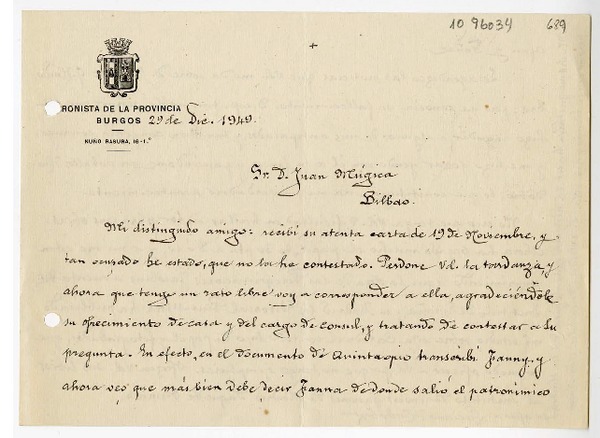 10 96034 689
+
RONISTA DE LA PROVINCIA
BURGOS 29 de Dic. 1949.
NUÑO RASURA, 16-1.º
Sr. D. Juan Múgica
Bilbao.
Mi distinguido amigo: recibí su atenta carta de 19 de Noviembre, y
tan ocupado he estado, que no la he contestado. Perdone Vd. la tardanza, y
ahora que tengo un rato libre voy a corresponder a ella, agradeciéndole
su ofrecimiento de casa y del cargo de consul, y tratando de contestar a su
pregunta. En efecto, en el documento de Quintaqio transcribí Fanny, y
ahora veo que más bien debe decir Fanna de donde salió el patronímico